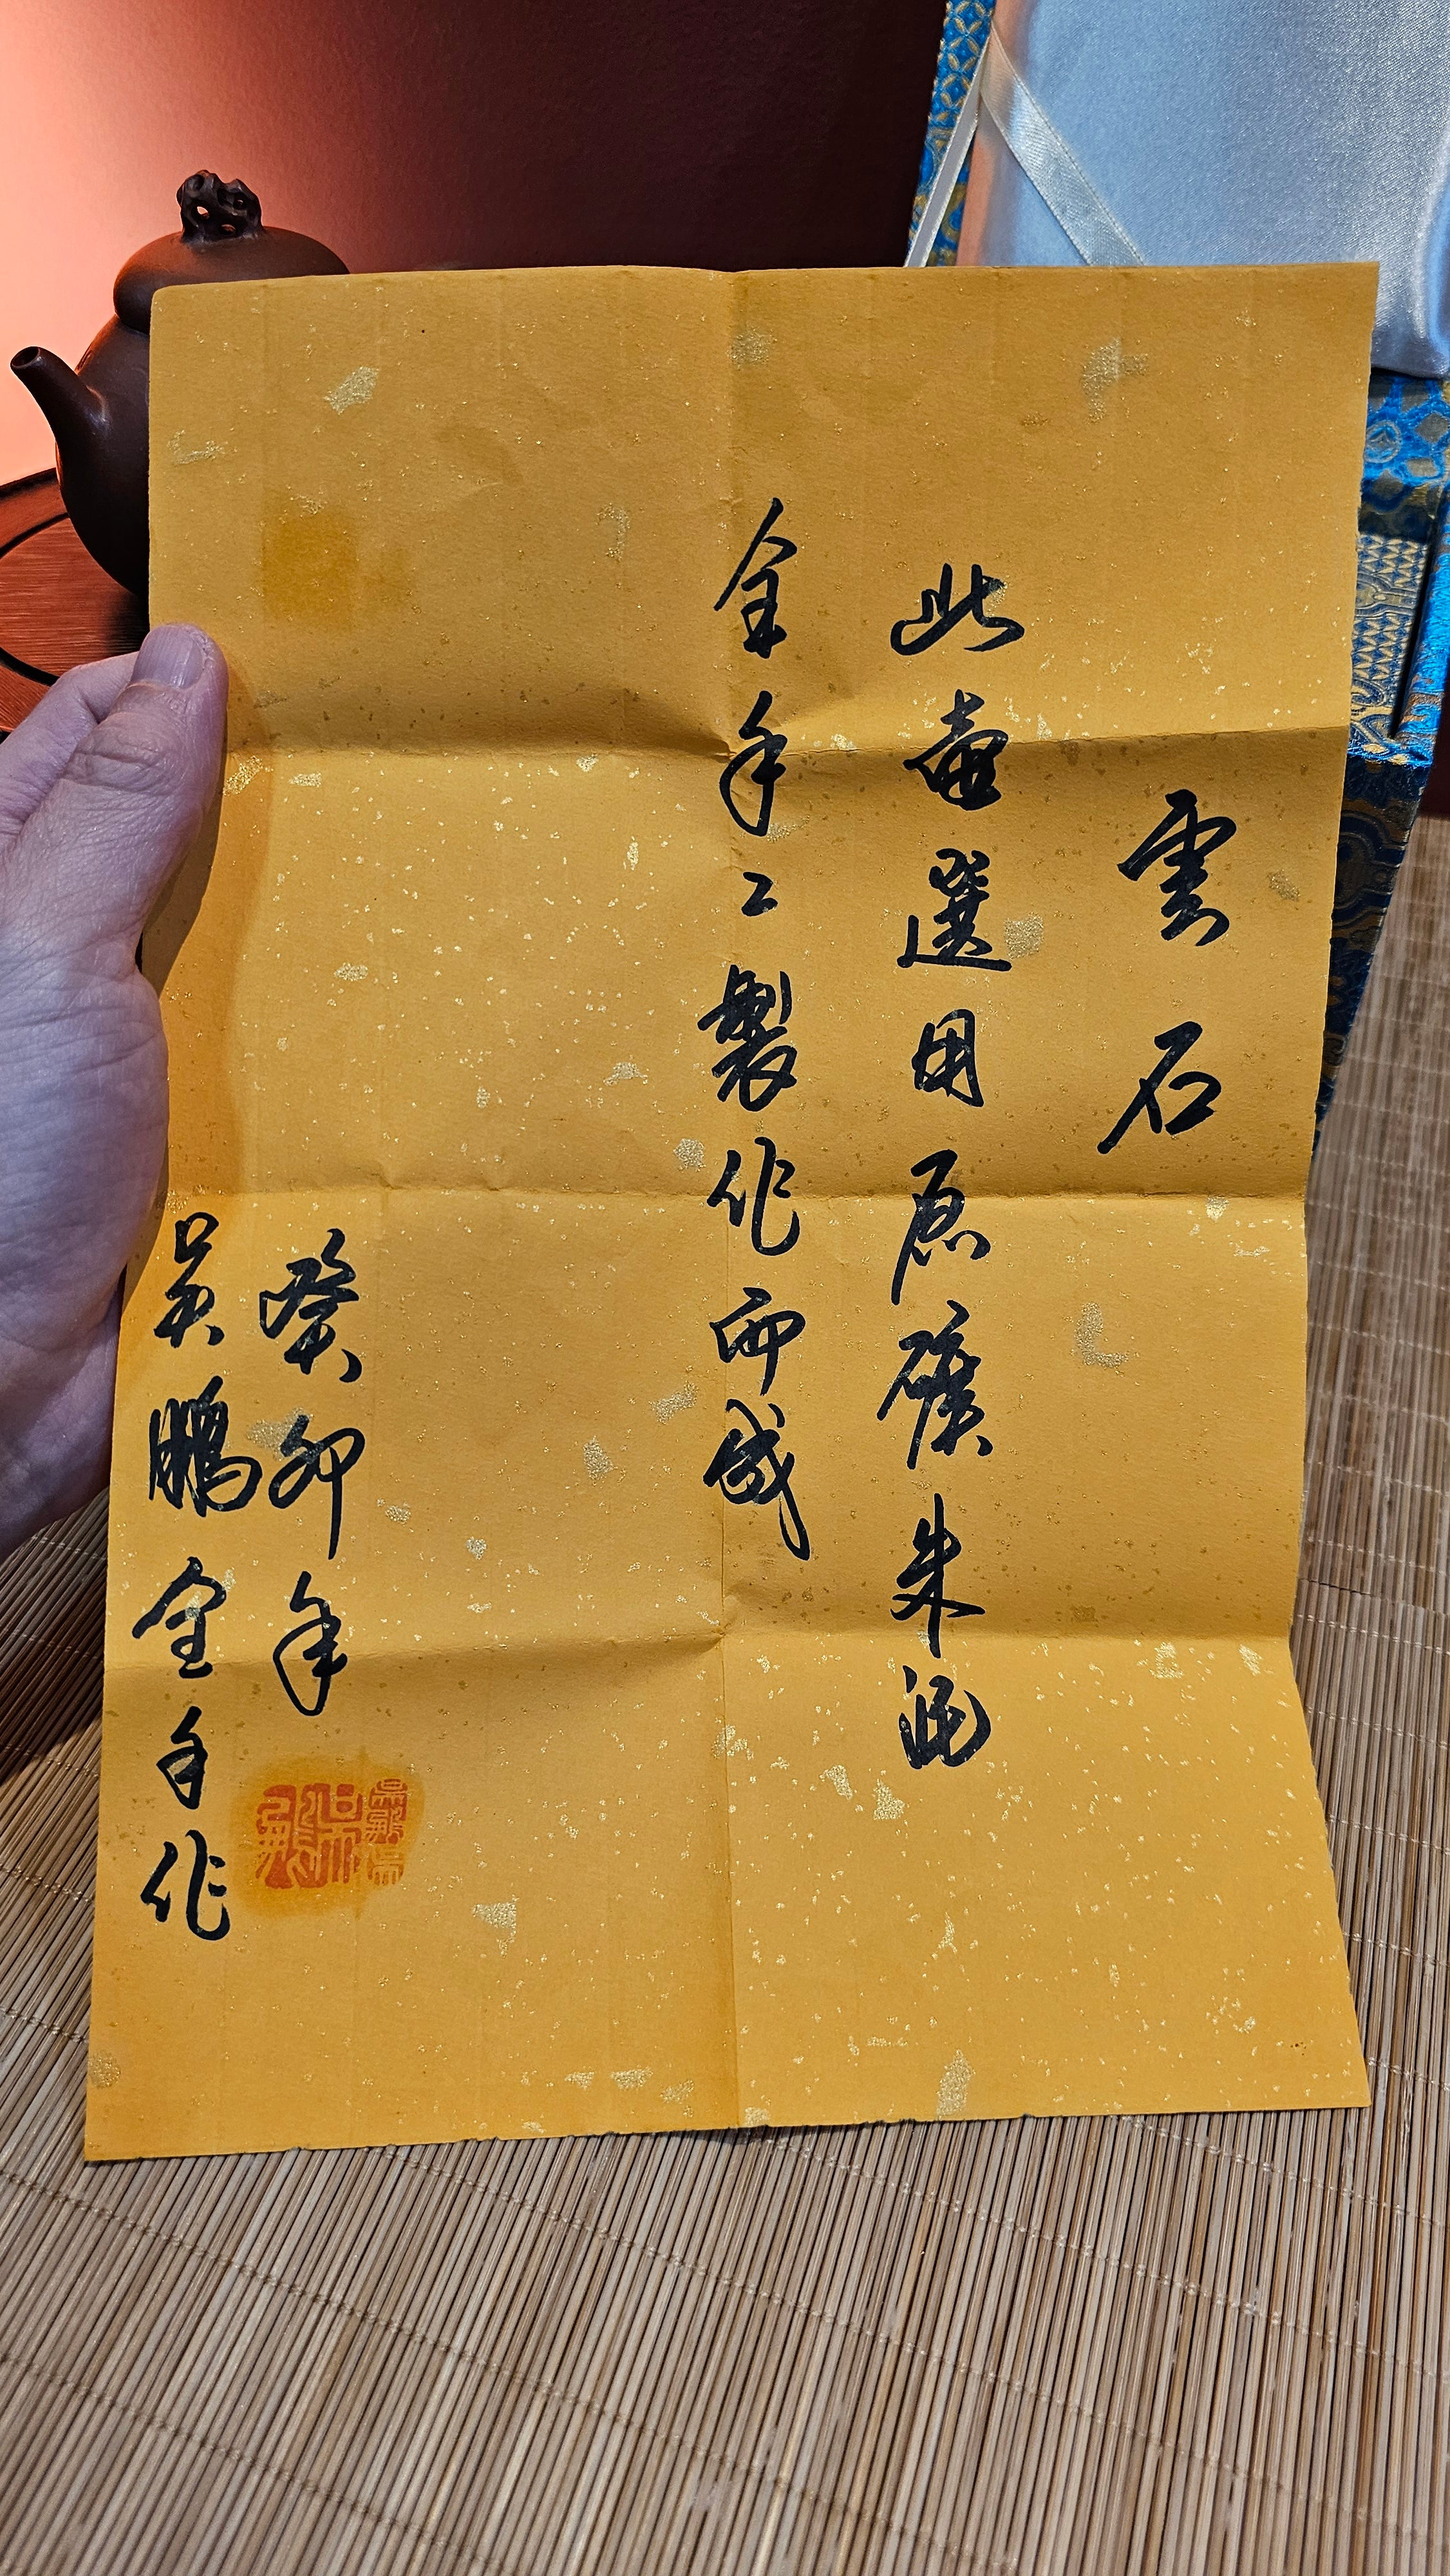 雲石
此壺選用原礦朱泥
全手工製作而成
癸卯年
吳鵬全手作